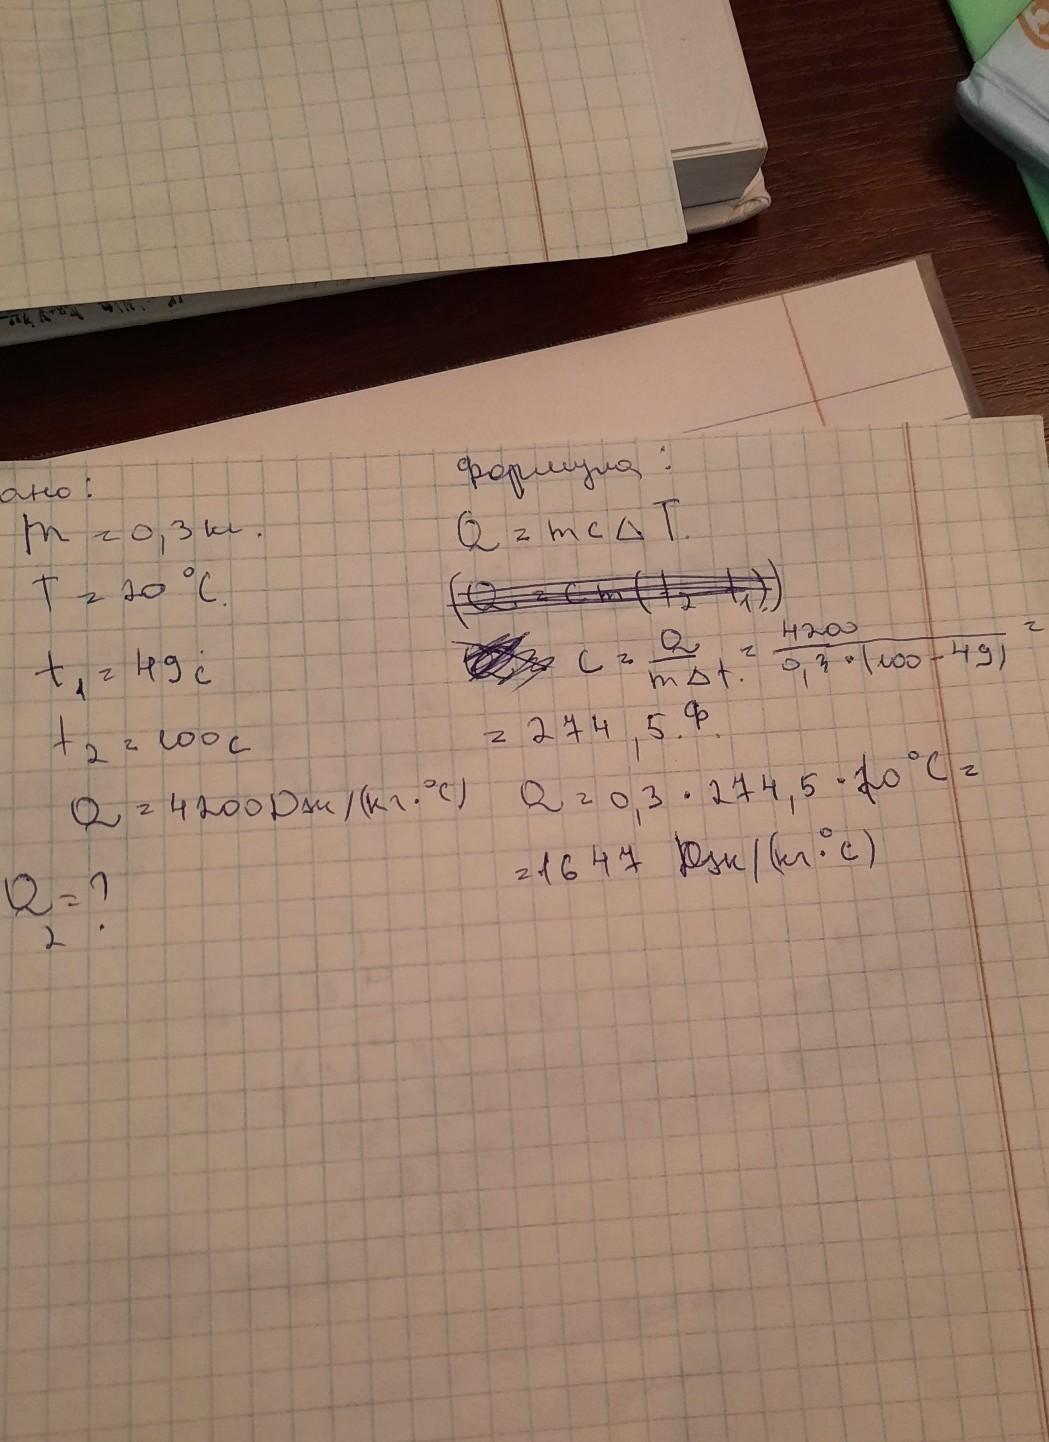 ано:
m = 0,3 кг.
T = 20 °C.
t₁ = 49 c
t₂ = 100 c
Q = 4200 Дж/(кг·°C)
Q₂ = ?
Формула:
Q = mcΔT.
(Q = cm(t₂ t₁))
c = Q/(mΔt.) = 4200/(0,3·(100-49)) =
= 274,5.Ф.
Q = 0,3 · 274,5 · 20 °C =
= 1647 Дж/(кг·°c)